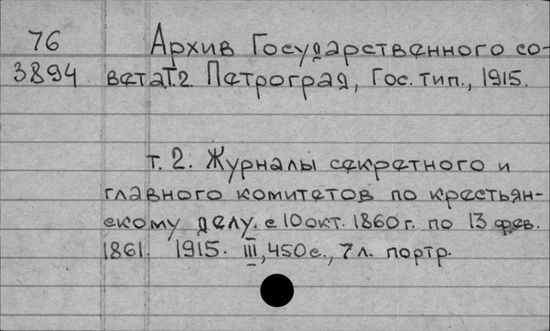 76 Архив Государственного со-
3894 вета.Т.2. Петроград, Гос. тип., 1915.
т. 2. Журналы секретного и
главного комитетов по крестьян-
скому делу. с 10 окт. 1860 г. по 13 фев.
1861. 1915. III, 450 с., 7 л. портр.